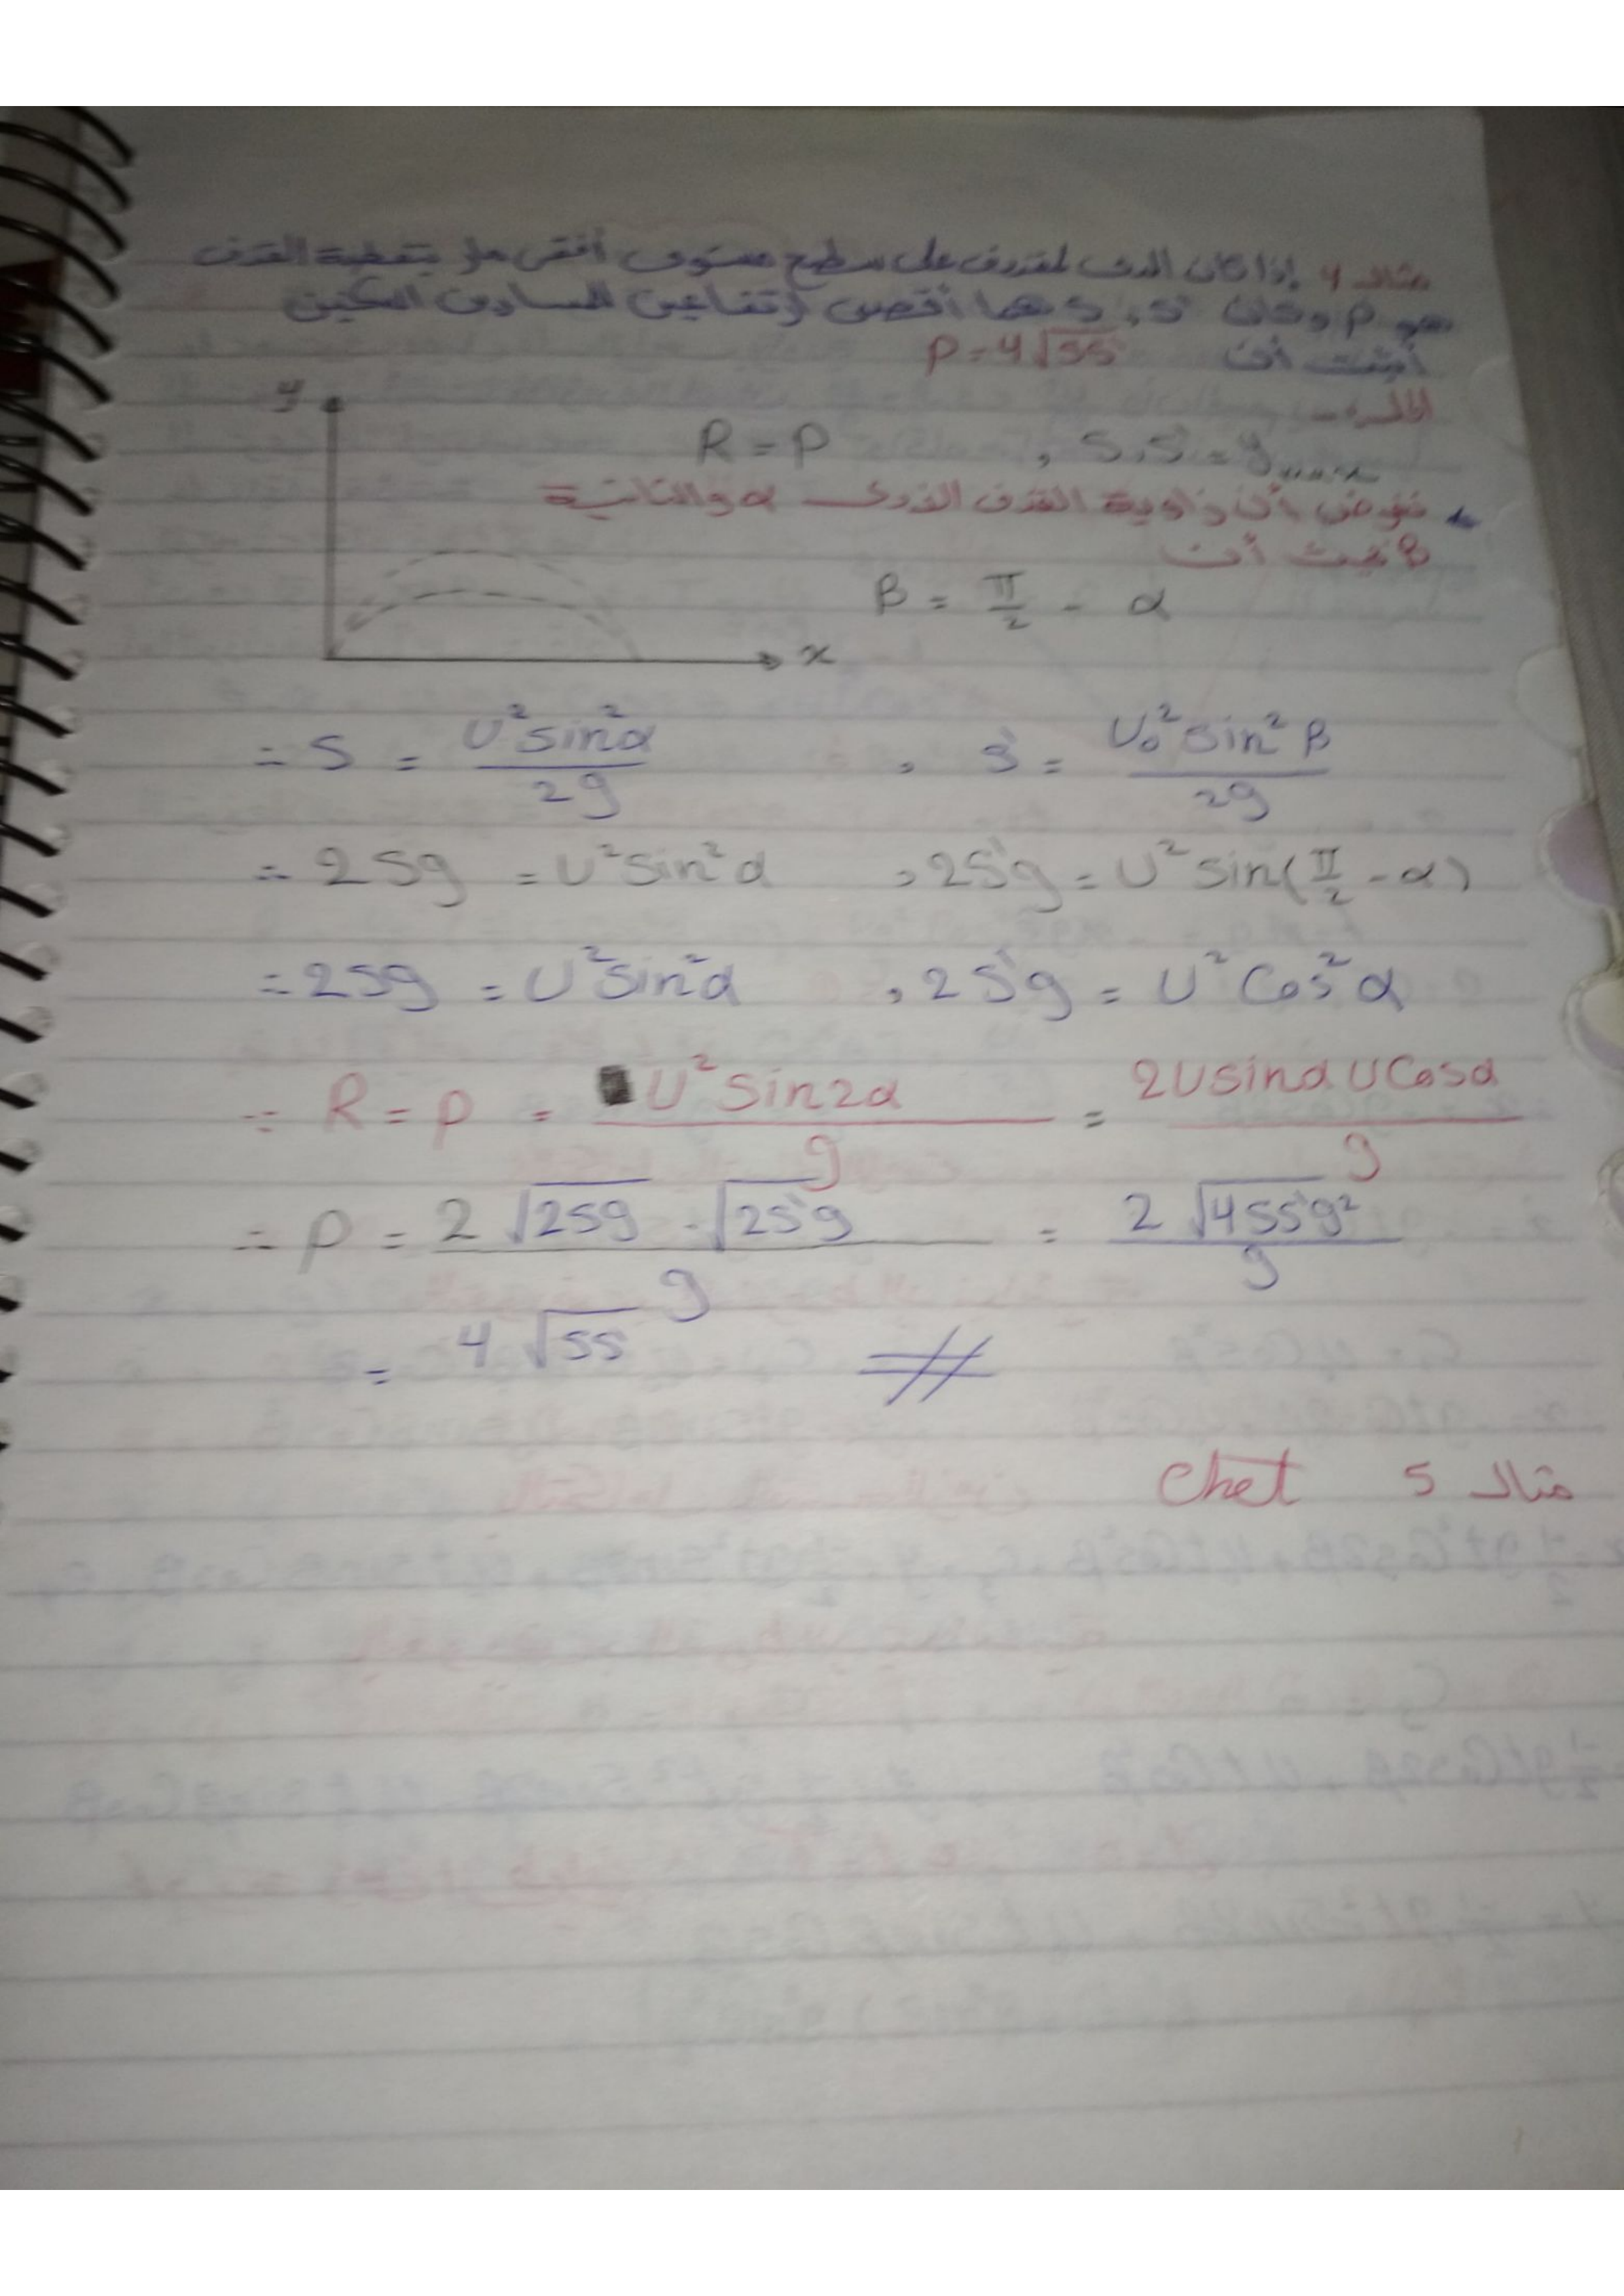 مثال 4 إذا كان المدى لمقذوف على سطح مستوى أفقى مار بنقطة القذف
هو P وكان S , S' هما أقصى ارتفاعين للمسارين الممكنين
أثبت أن P = 4√SS'
الحل :-
y
R = P , S , S' = y max
نفرض أن زاوية القذف الأولى α والثانية
β بحيث أن
β = π/2 - α
x
∴ S = U² sin² α / 2g , S' = U₀² sin² β / 2g
∴ 2Sg = U² sin² α , 2S'g = U² sin(π/2 - α)
∴ 2Sg = U² sin² α , 2S'g = U² Cos² α
∴ R = P = U² sin2α / g = 2U sinα U Cosα / g
∴ P = 2 √2Sg · √2S'g / g = 2 √4SS'g² / g
= 4 √SS' #
مثال 5 Chet